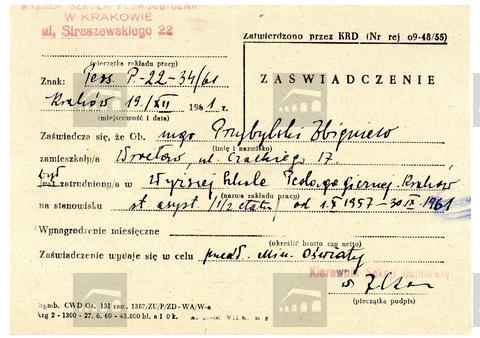 WYŻSZA SZKOŁA PEDAGOGICZNA
W KRAKOWIE
ul. Straszewskiego 22
(pieczątka zakładu pracy)
Zatwierdzono przez KRD (Nr rej o9-48/55)
Znak: Pers. P-22-34/61
Kraków 19/XII 1961 r.
(miejscowość i data)
ZAŚWIADCZENIE
Zaświadcza się, że Ob. mgr Przybylski Zbigniew
(imię i nazwisko)
zamieszkały/a Wrocław, ul. Czackiego 17.
był
zatrudniony/a w Wyższej Szkole Pedagogicznej Kraków
(nazwa zakładu pracy)
na stanowisku st. asyst. (1/2 etatu) od 1957 - 30 IX 1961
Wynagrodzenie miesięczne
(określić brutto czy netto)
Zaświadczenie wydaje się w celu przedł. Min. Oświaty
Kierownik Sekcji Osobowej
(pieczątka podpis)
Symb. CWD Os. 131 zam. 1367/ZU/PZD-WA/W-a
27. 6. 60 - 43.800 bl. a 10 k.